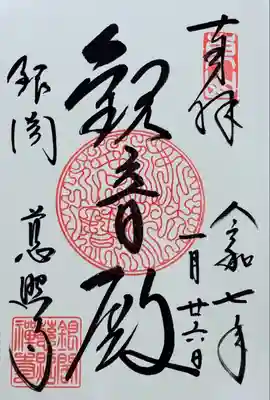 奉拝
令和七年
一月廿六日
観音殿
銀閣
慈照寺